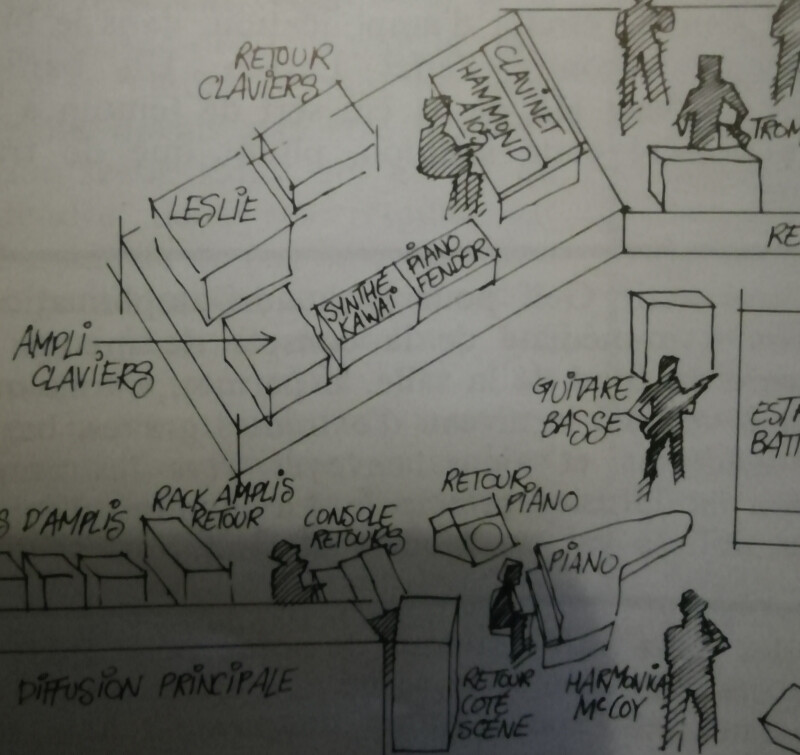 RETOUR
CLAVIERS
CLAVINET
HAMMOND
LESLIE
PIANO
FENDER
SYNTHÉ
KAWAI
AMPLI
CLAVIERS
GUITARE
BASSE
RETOUR
PIANO
S D'AMPLIS
RACK AMPLIS
RETOUR
CONSOLE
RETOURS
PIANO
DIFFUSION PRINCIPALE
RETOUR
COTÉ
SCÈNE
HARMONIKA
McCOY